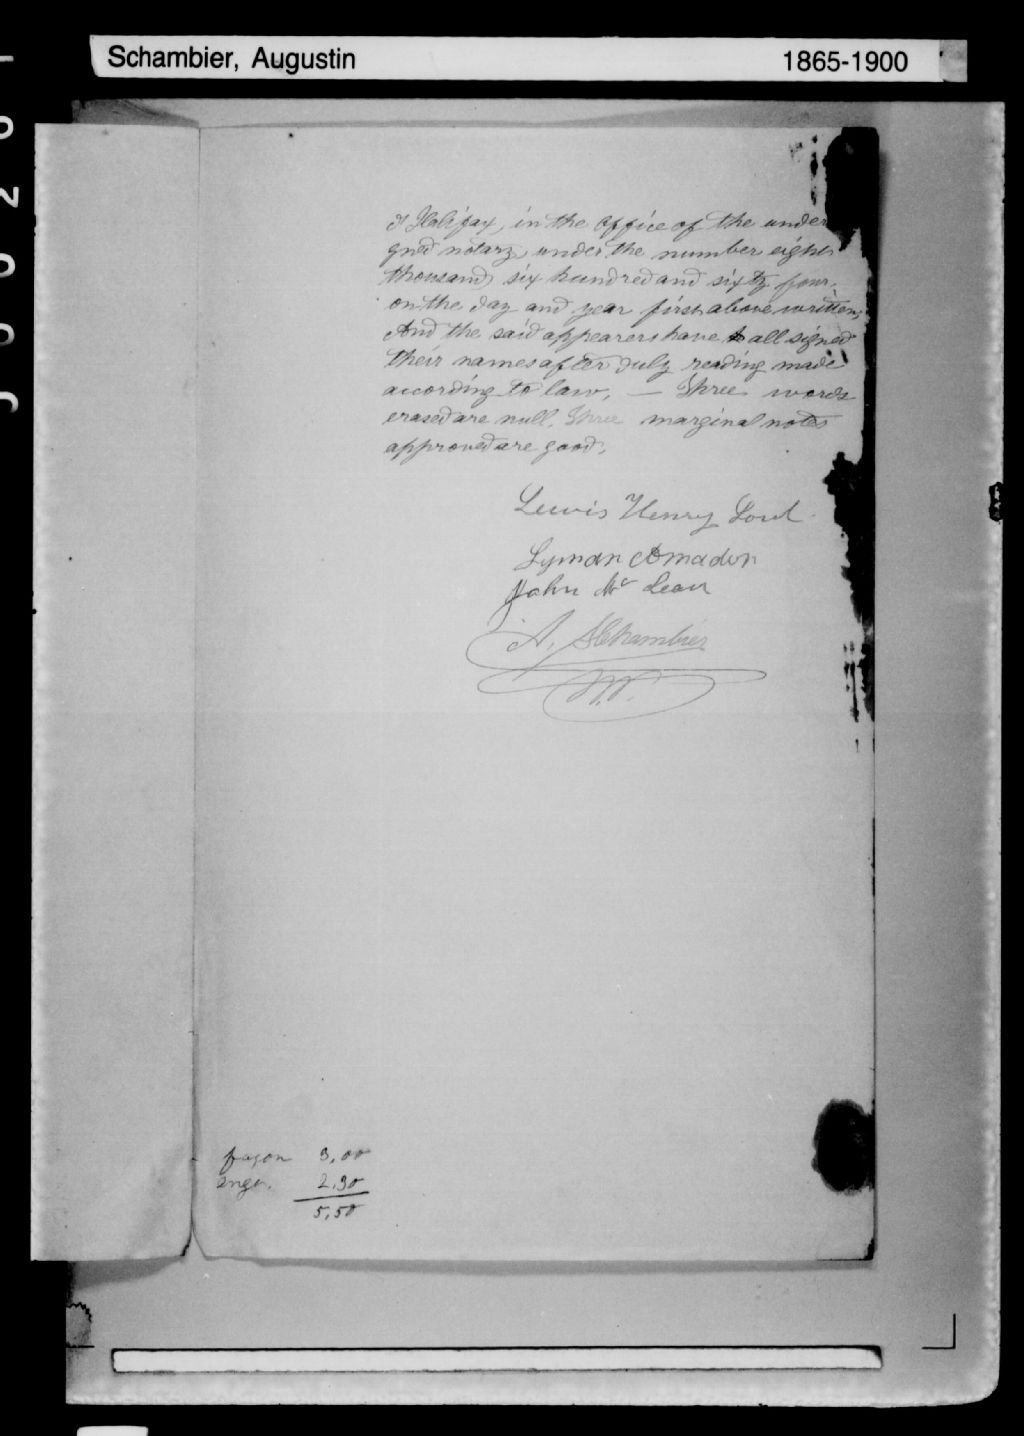 Schambier, Augustin 1865-1900
of Halifax, in the office of the under
gned notary, under the number eight
thousand six hundred and sixty four,
on the day and year first above written,
And the said appearers have all signed
their names after duly reading made
according to law, — Three words
erased are null. Three marginal notes
approved are good,
Lewis Henry Lord
Lyman Amadon
John Mc Lean
A. Schambier
N.P.
façon 3,00
engr.
5,50